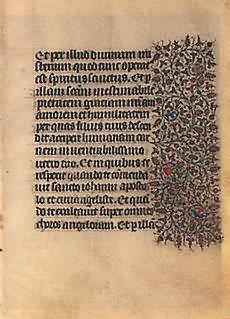 Et per illud divinum mi
sterium quod tunc operat
est spiritus sanctus. Et p
illam sctam inestimabile
pietatem gratiam miam
amorem et humilitatem
per quas filius tuus descen
dit accipere humanam car
nem in venerabilissimo
utero tuo. Et in quibus te
respexit quando te comenda
vit sancto iohanni aposto
lo et evangeliste. Et quan
do te exaltavit super omnes
choros angelorum. Et p illa